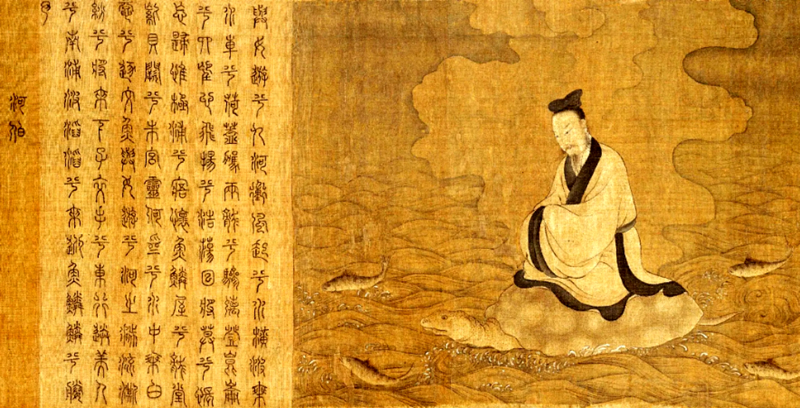 與女遊兮九河衝風起兮水橫波乘
水車兮荷蓋駕兩龍兮驂螭登崑崙
兮四望心飛揚兮浩蕩日將莫兮悵
忘歸惟極浦兮寤懷魚鱗屋兮龍堂
紫貝闕兮朱宮靈何為兮水中乘白
黿兮逐文魚與女遊兮河之渚流澌
紛兮將來下子交手兮東行送美人
兮南浦波滔滔兮來迎魚鱗鱗兮媵
予
河伯